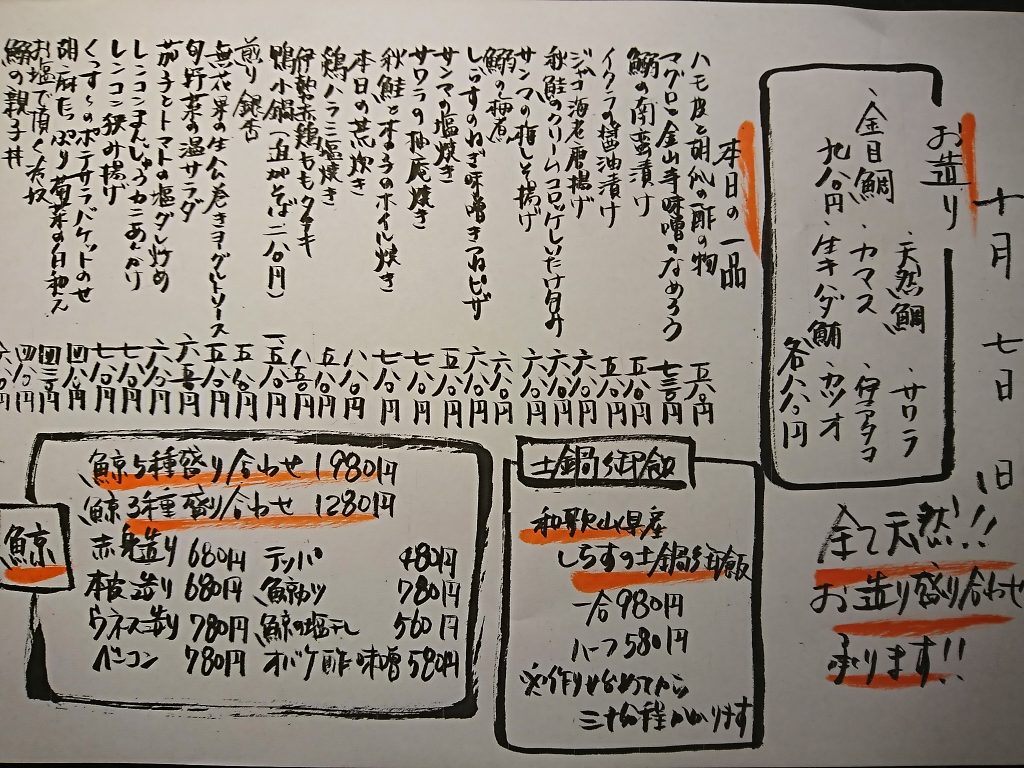 十月七日
お造り
・天然鯛 ・サワラ
・金目鯛 ・カマス
九八〇円 ・生キハダ鮪 ・カツオ
各八八〇円
全て天然!!
お造り盛り合わせ
承ります!!
本日の一品
ハモ皮と胡瓜の酢の物 五八〇円
マグロと金山寺味噌のなめろう 七三〇円
鰯の南蛮漬け 五八〇円
イクラの醤油漬け 五八〇円
ジャコ海老唐揚げ 六八〇円
秋鮭のクリームコロッケしいたけ包み 六八〇円
サンマの梅しそ揚げ 六八〇円
鰯の梅煮 六八〇円
しらすのねぎ味噌きつねピザ 六八〇円
サンマの塩焼き 五八〇円
サワラの柚庵焼き 七八〇円
秋鮭ときの子のホイル焼き 七八〇円
本日の荒炊き 八八〇円
鶏ハラミ塩焼き 五八〇円
伊勢赤鶏ももタタキ 八五〇円
鴨小鍋(追加そば二八〇円) 一五八〇円
煎り銀杏 五八〇円
無花果の生ハム巻きヨーグルトソース 五八〇円
旬野菜の温サラダ 六五〇円
茄子とトマトの塩ダレ炒め 六八〇円
レンコンまんじゅうカニあんかけ 七八〇円
レンコン挟み揚げ 七八〇円
くっすぅのポテサラバケットのせ 四八〇円
胡麻たっぷり菊菜の白和え 四三〇円
お塩で頂く冷奴 四八〇円
鰯の親子丼 六八〇円
土鍋御飯
和歌山県産
しらすの土鍋御飯
一合980円
ハーフ580円
※作り始めてから
三十分程かかります
鯨
鯨5種盛り合わせ 1980円
鯨3種盛り合わせ 1280円
赤身造り 680円 テッパ 480円
本皮造り 680円 鯨カツ 780円
ウネス造り 780円 鯨の塩干し 560円
ベーコン 780円 オバケ酢味噌 580円